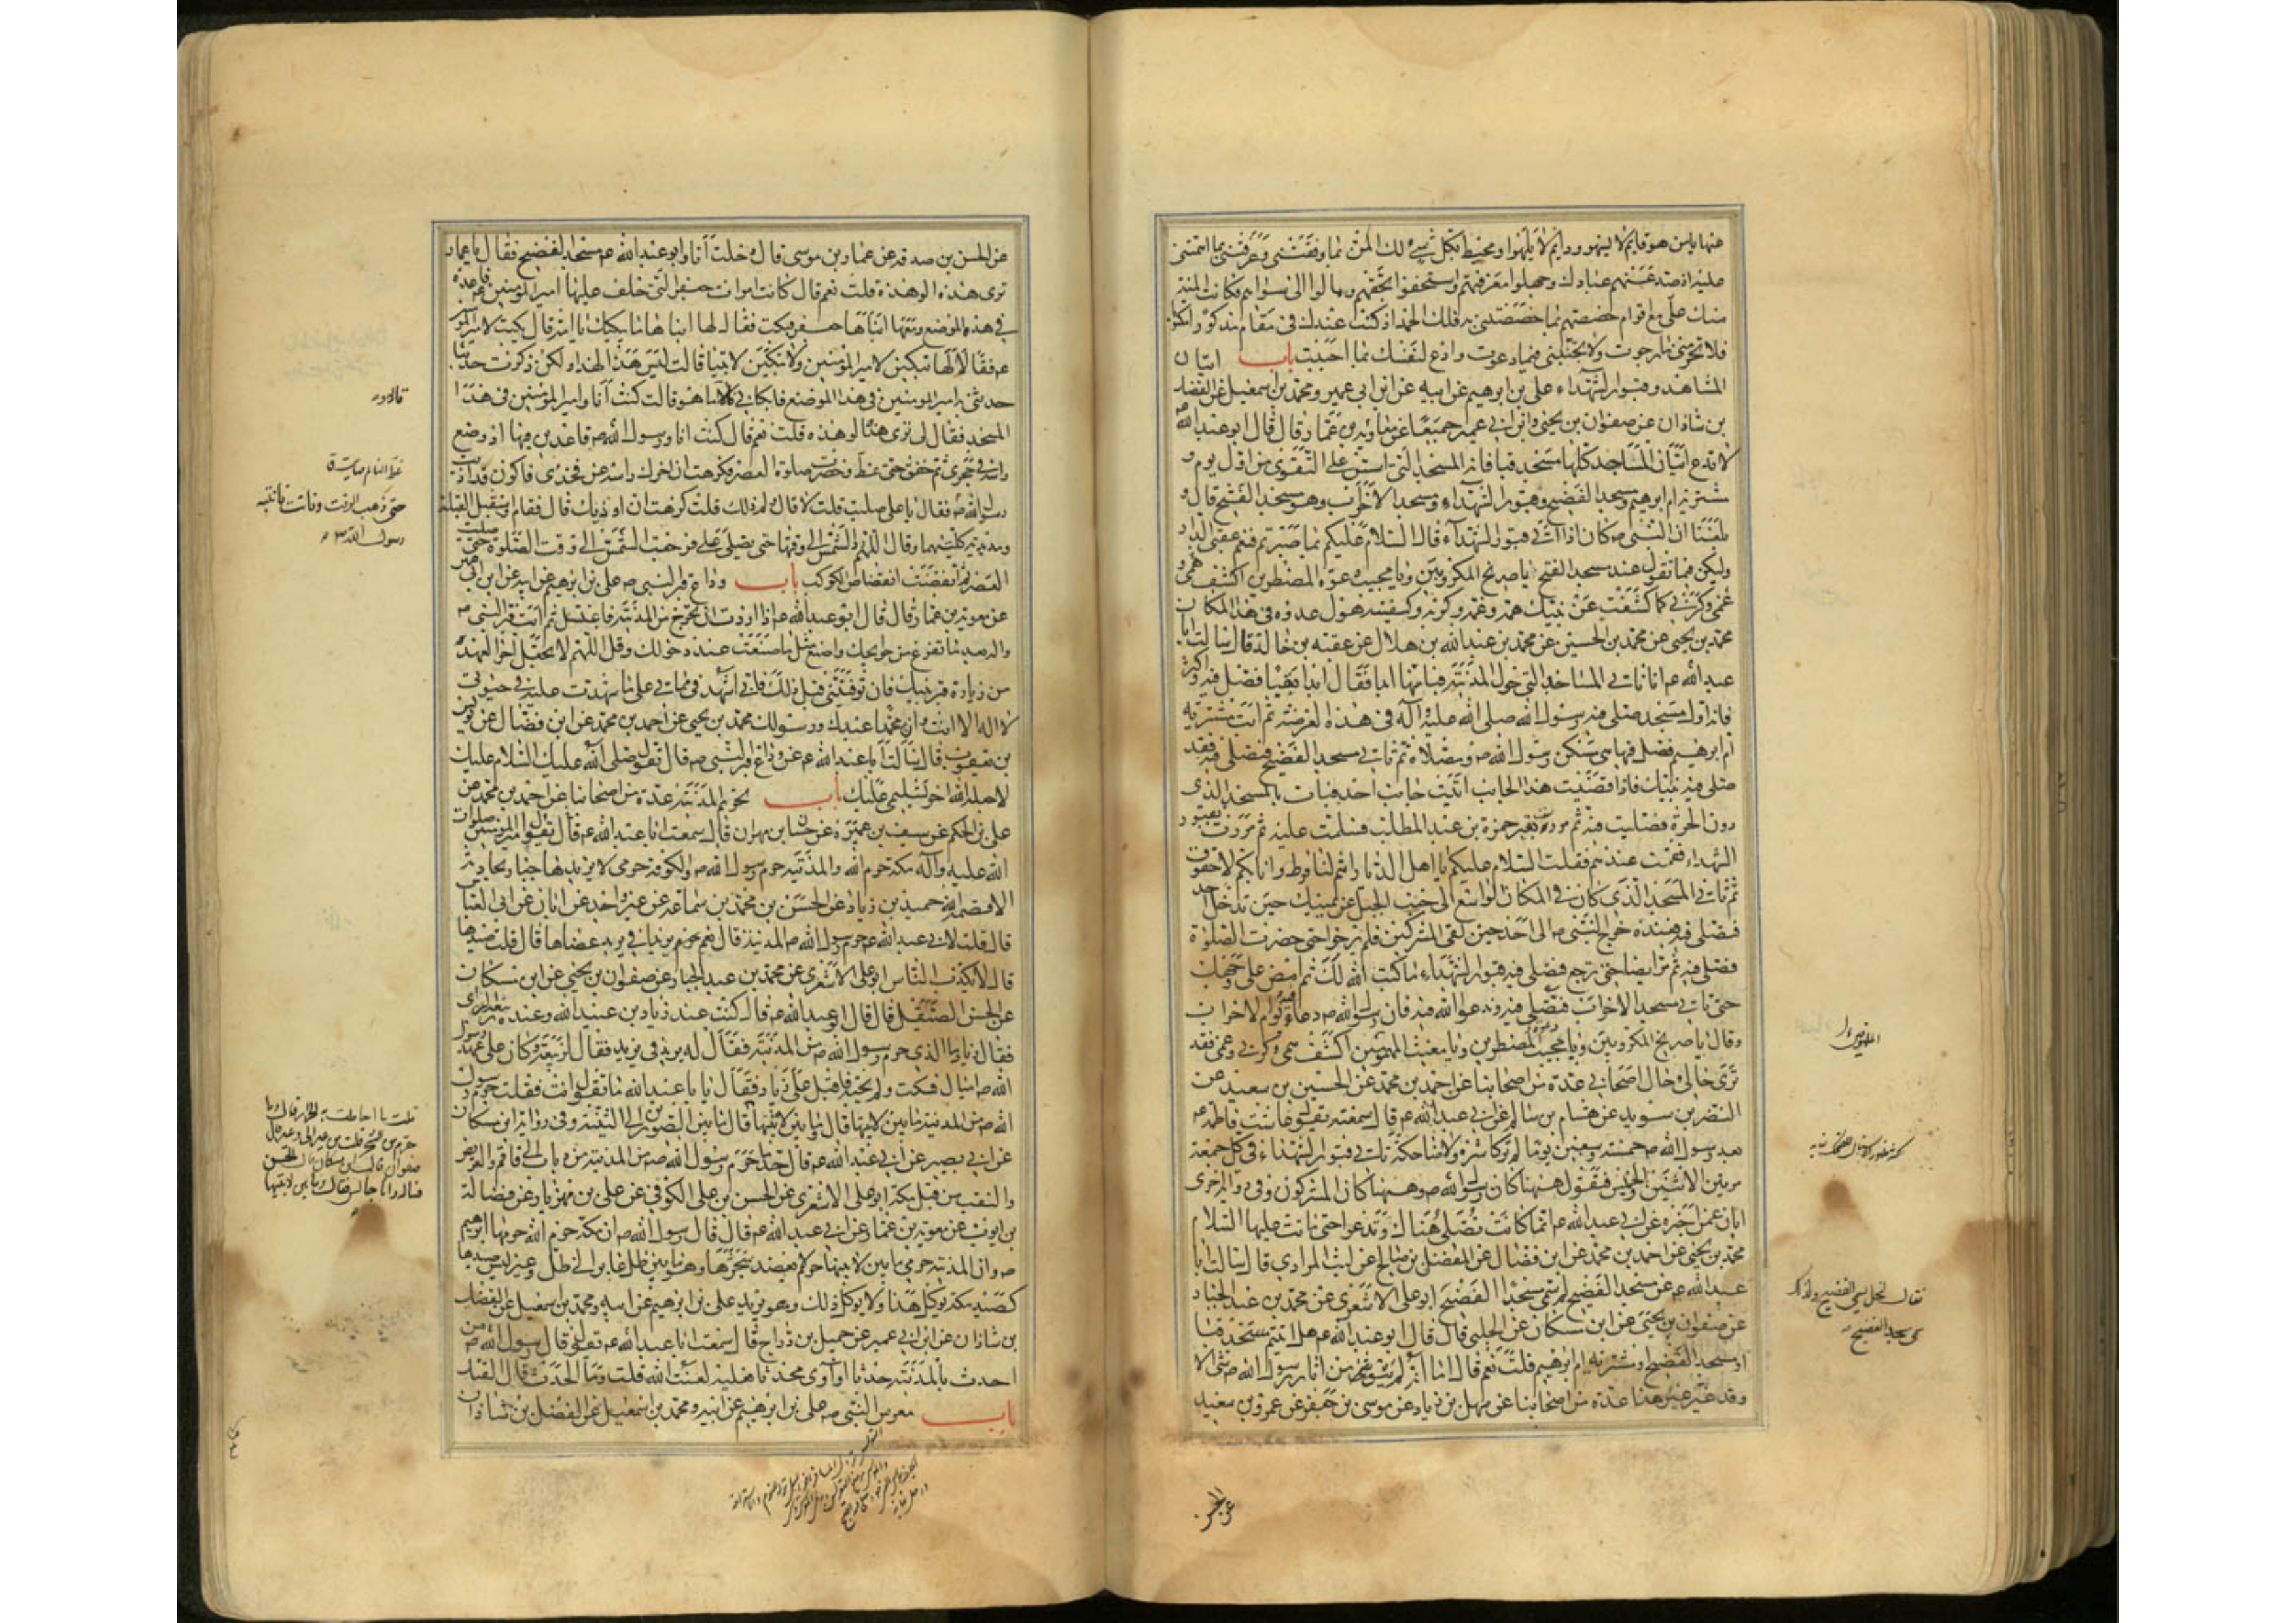 عنها يا من هو قايم لا يسهو ودايم لا يلهوا ومحيط بكل شئ لك المن بما وفقتنى وعرفتنى بما ائتمنتنى
عليه اذ صد عنهم عبادك وجهلوا معرفتهم واستخفوا بحقهم ومالوا الى سواهم فكانت المنة
منك علىّ مع اقوام خصصتهم بما خصصتنى به فلك الحمد اذ كنت عندك فى مقامى مذكورا مكتوبا
فلا تحرمنى ما رجوت ولا تخيبنى فيما دعوت وادع لنفسك بما احببت باب اتيان
المشاهد وقبور الشهداء على بن ابرهيم عن ابيه عن ابن ابى عمير ومحمد بن اسمعيل عن الفضل
بن شاذان عن صفوان بن يحيى وابن ابى عمير جميعا عن معاوية بن عمار قال قال ابو عبد الله ع
لا تدع اتيان المشاهد كلها مسجد قبا فانه المسجد الذى اسس على التقوى من اول يوم و
مشربة ام ابرهيم ومسجد الفضيخ وقبور الشهداء ومسجد الاحزاب وهو مسجد الفتح قال و
بلغنا ان النبى ص كان اذا اتى قبور الشهداء قال السلام عليكم بما صبرتم فنعم عقبى الدار
وليكن فيما تقول عند مسجد الفتح يا صريخ المكروبين ويا مجيب دعوة المضطرين اكشف همى و
غمى وكربى كما كشفت عن نبيك همه وغمه وكربه وكفيته هول عدوه فى هذا المكان
محمد بن يحيى عن محمد بن الحسين عن محمد بن عبد الله بن هلال عن عقبة بن خالد قال سالت ابا
عبد الله ع انا ناتى المساجد التى حول المدينة فبايها ابدا فقال ابدا بقبا فصل فيه واكثر
فانه اول مسجد صلى فيه رسول الله صلى الله عليه واله فى هذه العرصة ثم ائت مشربة
ام ابرهيم فصل فيها هى مسكن رسول الله ص ومصلاه ثم تاتى مسجد الفضيخ فتصلى فيه فقد
صلى فيه نبيك فاذا قضيت هذا الجانب اتيت جانب احد فبدات بالمسجد الذى
دون الحرة فصليت فيه ثم مررت بقبر حمزة بن عبد المطلب فسلمت عليه ثم مررت بقبور
الشهداء فقمت عندهم فقلت السلام عليكم يا اهل الديار انتم لنا فرط وانا بكم لاحقون
ثم تاتى المسجد الذى كان فى المكان الواسع الى جنب الجبل عن يمينك حين تدخل احد
فتصلى فيه فعنده خرج النبى ص الى احد حين لقى المشركين فلم يبرحوا حتى حضرت الصلوة
فصلى فيه ثم مر ايضا حتى ترجع فتصلى فيه قبور الشهداء ما كتب الله لك ثم امض على وجهك
حتى تاتى مسجد الاحزاب فتصلى فيه وتدعو الله فيه فان رسول الله ص دعا فيه يوم الاحزاب
وقال يا صريخ المكروبين ويا مجيب المضطرين ويا مغيث المهمومين اكشف همى وكربى وغمى فقد
ترى حالى وحال اصحابى عدة من اصحابنا عن احمد بن محمد عن الحسين بن سعيد عن
النضر بن سويد عن هشام بن سالم عن ابى عبد الله ع قال سمعته يقول عاشت فاطمه ع
بعد رسول الله ص خمسة وسبعين يوما لم تر كاشرة ولا ضاحكة تاتى قبور الشهداء فى كل جمعة
مرتين الاثنين والخميس فتقول ههنا كان رسول الله ص وههنا كان المشركون وفى رواية اخرى
ابان عمن اخبره عن ابى عبد الله ع انها كانت تصلى هناك وتدعوا حتى ماتت عليها السلام
محمد بن يحيى عن احمد بن محمد عن ابن فضال عن المفضل بن صالح عن ليث المرادى قال سالت ابا
عبد الله ع عن مسجد الفضيخ لم سمى مسجد الفضيخ ابو على الاشعرى عن محمد بن عبد الجبار
عن صفوان بن يحيى عن ابن مسكان عن الحلبى قال قال ابو عبد الله ع هل اتيتم مسجد قبا
او مسجد الفضيخ او مشربة ام ابرهيم قلت نعم قال اما انه لم يبق من اثار رسول الله ص شئ الا
وقد غير غير هذا عدة من اصحابنا عن سهل بن زياد عن موسى بن جعفر عن عمرو بن سعيد
فقال النخل يسمى الفضيخ ولذلك
سمى مسجد الفضيخ
عن الحسن
عن الحسن بن صدقه عن عمار بن موسى قال دخلت انا وابو عبد الله ع مسجد الفضيخ فقال يا عمار
ترى هذه الوهدة قلت نعم قال كانت امراة جعفر التى خلف عليها امير المؤمنين ع قاعدة
فى هذا الموضع ومعها ابناها من جعفر فبكت فقال لها ابناها ما يبكيك يا امه قال بكيت لامير المؤمنين
ع فقالا لها تبكين لامير المؤمنين ولا تبكين لابينا قالت ليس هذا لهذا ولكن ذكرت حديثا
حدثنى به امير المؤمنين فى هذا الموضع فابكانى قالا وما هو قالت كنت انا وامير المؤمنين فى هذا
المسجد فقال لى ترى هذه الوهدة قلت نعم قال كنت انا ورسول الله ص قاعدين فيها اذ وضع
راسه فى حجرى ثم خفق حتى غط وحضرت صلوة العصر فكرهت ان احرك راسه عن فخذى فاكون قد اذيت
رسول الله ص فقال يا على صليت قلت لا قال ولم ذلك قلت كرهت ان اوذيك قال فقام واستقبل القبلة
ومد يديه كلتيهما وقال اللهم رد الشمس الى وقتها حتى يصلى على فرجعت الشمس الى وقت الصلوة حتى صليت
العصر ثم انقضت انقضاض الكوكب باب وداع قبر النبى ص على بن ابرهيم عن ابيه عن ابن ابى عمير
عن معوية بن عمار قال قال ابو عبد الله ع اذا اردت ان تخرج من المدينة فاغتسل ثم ائت قبر النبى ص
واله بعد ما تفرغ من حوايجك واصنع مثل ما صنعت عند دخولك وقل اللهم لا تجعله اخر العهد
من زيارة قبر نبيك فان توفيتنى قبل ذلك فانى اشهد فى مماتى على ما شهدت عليه فى حيوتى
لا اله الا انت وان محمدا عبدك ورسولك محمد بن يحيى عن احمد بن محمد عن ابن فضال عن يونس
بن يعقوب قال سالت ابا عبد الله ع عن وداع قبر النبى ص قال تقول صلى الله عليك السلام عليك
لا جعله الله اخر تسليمى عليك باب تحريم المدينة عدة من اصحابنا عن احمد بن محمد عن
على بن الحكم عن سيف بن عميرة عن حسان بن مهران قال سمعت ابا عبد الله ع قال يقول امير المؤمنين صلوات
الله عليه واله مكة حرم الله والمدينة حرم رسول الله ص والكوفة حرمى لا يريدها جبار بحادثة
الا قصمه الله حميد بن زياد عن الحسن بن محمد بن سماعه عن غير واحد عن ابان عن ابى العباس
قال قلت لابى عبد الله ع حرم رسول الله ص المدينة قال نعم حرم بريدا فى بريد عضاها قال قلت صيدها
قال لا يكذب الناس ابو على الاشعرى عن محمد بن عبد الجبار عن صفوان بن يحيى عن ابن مسكان
عن الحسن الصيقل قال قال ابو عبد الله ع قال كنت عند زياد بن عبيد الله وعنده ربيعة الراى
فقال زياد ما الذى حرم رسول الله ص من المدينة فقال له بريد فى بريد فقال لربيعة وكان على عهد رسول
الله ص اميال فسكت ولم يجبه فاقبل على زياد فقال يا ابا عبد الله ما تقول انت فقلت حرم رسول
الله ص من المدينة ما بين لابتيها قال وما بين لابتيها قال ما بين الصورين الى الثنية وفى رواية ابن مسكان
عن ابى بصير عن ابى عبد الله ع قال حد ما حرم رسول الله ص من المدينة من ذباب الى واقم والعريض
والنقب من قبل مكة ابو على الاشعرى عن الحسن بن على الكوفى عن على بن مهزيار عن فضالة
بن ايوب عن معوية بن عمار عن ابى عبد الله ع قال قال رسول الله ص ان مكة حرم الله حرمها ابرهيم
ص وان المدينة حرمى ما بين لابتيها حرم لا يعضد شجرها وهو ما بين ظل عاير الى ظل وعير ليس صيدها
كصيد مكة يوكل هذا ولا يوكل ذلك وهو بريد على بن ابرهيم عن ابيه ومحمد بن اسمعيل عن الفضل
بن شاذان عن ابن ابى عمير عن جميل بن دراج قال سمعت ابا عبد الله ع يقول قال رسول الله ص من
احدث بالمدينة حدثا او اوى محدثا فعليه لعنة الله قلت وما الحدث قال القتل
باب معرس النبى ص على بن ابرهيم عن ابيه ومحمد بن اسمعيل عن الفضل بن شاذان
حتى ذهب الوقت وفاتت فانتبه
رسول الله ص